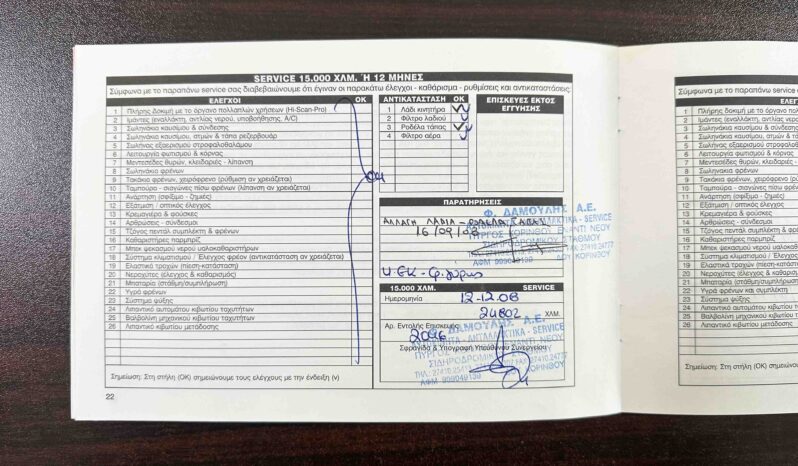 SERVICE 15.000 ΧΛΜ. Ή 12 ΜΗΝΕΣ
Σύμφωνα με το παραπάνω service σας διαβεβαιώνουμε ότι έγιναν οι παρακάτω έλεγχοι - καθάρισμα - ρυθμίσεις και αντικαταστάσεις:
ΕΛΕΓΧΟΙ OK
1 Πλήρης Δοκιμή με το όργανο πολλαπλών χρήσεων (Hi-Scan-Pro)
2 Ιμάντες (εναλλάκτη, αντλίας νερού, υποβοήθησης, A/C)
3 Σωληνάκια καυσίμου & σύνδεσης
4 Σωληνάκια καυσίμου, ατμών & τάπα ρεζερβουάρ
5 Σωλήνας εξαερισμού στροφαλοθαλάμου
6 Λειτουργία φωτισμού & κόρνας
7 Μεντεσέδες θυρών, κλειδαριές - λίπανση
8 Σωληνάκια φρένων
9 Τακάκια φρένων, χειρόφρενο (ρύθμιση αν χρειάζεται)
10 Ταμπούρα - σιαγώνες πίσω φρένων (λίπανση αν χρειάζεται)
11 Ανάρτηση (σφίξιμο - ζημιές)
12 Εξάτμιση / οπτικός έλεγχος
13 Κρεμαγιέρα & φούσκες
14 Αρθρώσεις - σύνδεσμοι
15 Τζόγος πεντάλ συμπλέκτη & φρένων
16 Καθαριστήρες παρμπρίζ
17 Μπεκ ψεκασμού νερού υαλοκαθαριστήρων
18 Σύστημα κλιματισμού / Έλεγχος φρεόν (αντικατάσταση αν χρειάζεται)
19 Ελαστικά τροχών (πίεση-κατάσταση)
20 Νεροχύτες (έλεγχος & καθαρισμός)
21 Μπαταρία (στάθμη/συμπλήρωση)
22 Υγρά φρένων & συμπλέκτη
23 Σύστημα ψύξης
24 Λιπαντικό αυτόματου κιβωτίου ταχυτήτων
25 Βαλβολίνη μηχανικού κιβωτίου ταχυτήτων
26 Λιπαντικό κιβωτίου μετάδοσης
OK
Σημείωση: Στη στήλη (ΟΚ) σημειώνουμε τους ελέγχους με την ένδειξη (ν)
22
ΑΝΤΙΚΑΤΑΣΤΑΣΗ OK
1 Λάδι κινητήρα
2 Φίλτρο λαδιού
3 Ροδέλα τάπας
4 Φίλτρο αέρα
ΕΠΙΣΚΕΥΕΣ ΕΚΤΟΣ ΕΓΓΥΗΣΗΣ
ΠΑΡΑΤΗΡΗΣΕΙΣ
ΑΛΛΑΓΗ ΛΑΔΙΑ - ΡΟΔΕΛΑ ΤΑΠΑΣ
16/09/08
Φ. ΔΑΜΟΥΛΗΣ Α.Ε.
ΑΝΤΑΛΛΑΚΤΙΚΑ - SERVICE
ΠΥΡΓΟΣ ΚΟΡΙΝΘΟΥ ΕΝΑΝΤΙ ΝΕΟΥ
ΣΙΔΗΡΟΔΡΟΜΙΚΟΥ ΣΤΑΘΜΟΥ
ΑΦΜ 909049139
15.000 ΧΛΜ. SERVICE
Ημερομηνία 12-12-08
24802 ΧΛΜ.
Αρ. Εντολής Επισκευής
2096
Σφραγίδα & Υπογραφή Υπεύθυνου Συνεργείου
Φ. ΔΑΜΟΥΛΗΣ Α.Ε.
ΑΝΤΑΛΛΑΚΤΙΚΑ - SERVICE
ΠΥΡΓΟΣ ΚΟΡΙΝΘΟΥ ΕΝΑΝΤΙ ΝΕΟΥ
ΣΙΔΗΡΟΔΡΟΜΙΚΟΥ
ΑΦΜ 909049139
Σύμφωνα με το παραπάνω service
ΕΛΕΓΧΟΙ
1 Πλήρης Δοκιμή με το όργανο
2 Ιμάντες (εναλλάκτη, αντλίας
3 Σωληνάκια καυσίμου &
4 Σωληνάκια καυσίμου,
5 Σωλήνας εξαερισμού
6 Λειτουργία φωτισμού &
7 Μεντεσέδες θυρών,
8 Σωληνάκια φρένων
9 Τακάκια φρένων,
10 Ταμπούρα - σιαγώνες
11 Ανάρτηση (σφίξιμο -
12 Εξάτμιση / οπτικός
13 Κρεμαγιέρα & φούσκες
14 Αρθρώσεις - σύνδεσμοι
15 Τζόγος πεντάλ
16 Καθαριστήρες
17 Μπεκ ψεκασμού νερού
18 Σύστημα κλιματισμού /
19 Ελαστικά τροχών
20 Νεροχύτες (έλεγχος &
21 Μπαταρία
22 Υγρά φρένων &
23 Σύστημα ψύξης
24 Λιπαντικό αυτόματου
25 Βαλβολίνη μηχανικού
26 Λιπαντικό κιβωτίου
Σημείωση: Στη στήλη (ΟΚ)